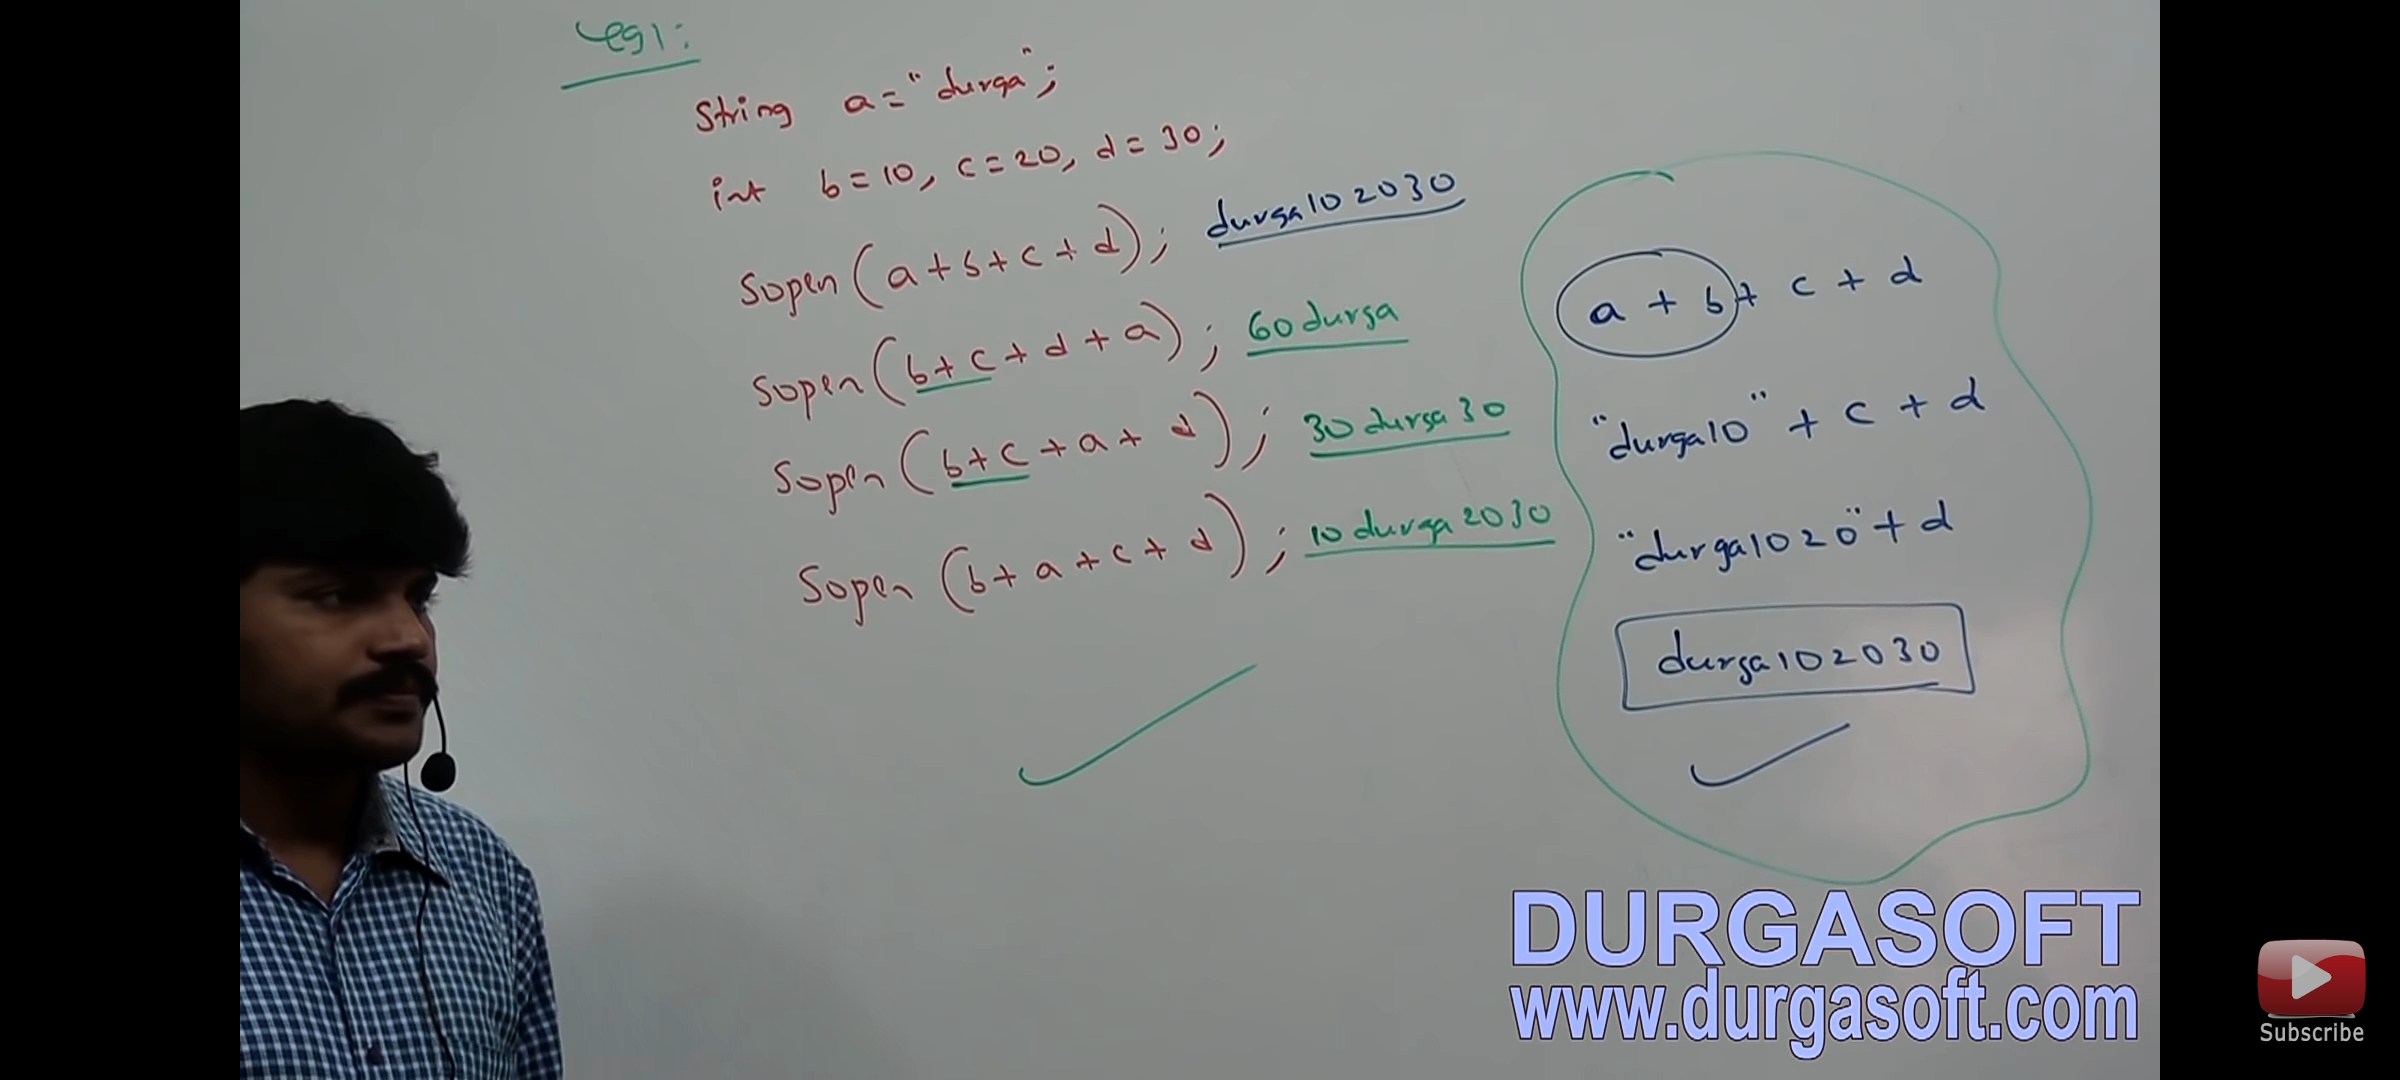 eg1:
String a="durga";
int b=10, c=20, d=30;
Sopen(a+b+c+d); durga102030
Sopen(b+c+d+a); 60durga
Sopen(b+c+a+d); 30durga30
Sopen(b+a+c+d); 10durga2030
a+b+c+d
"durga10"+c+d
"durga1020"+d
durga102030
DURGASOFT
www.durgasoft.com
Subscribe